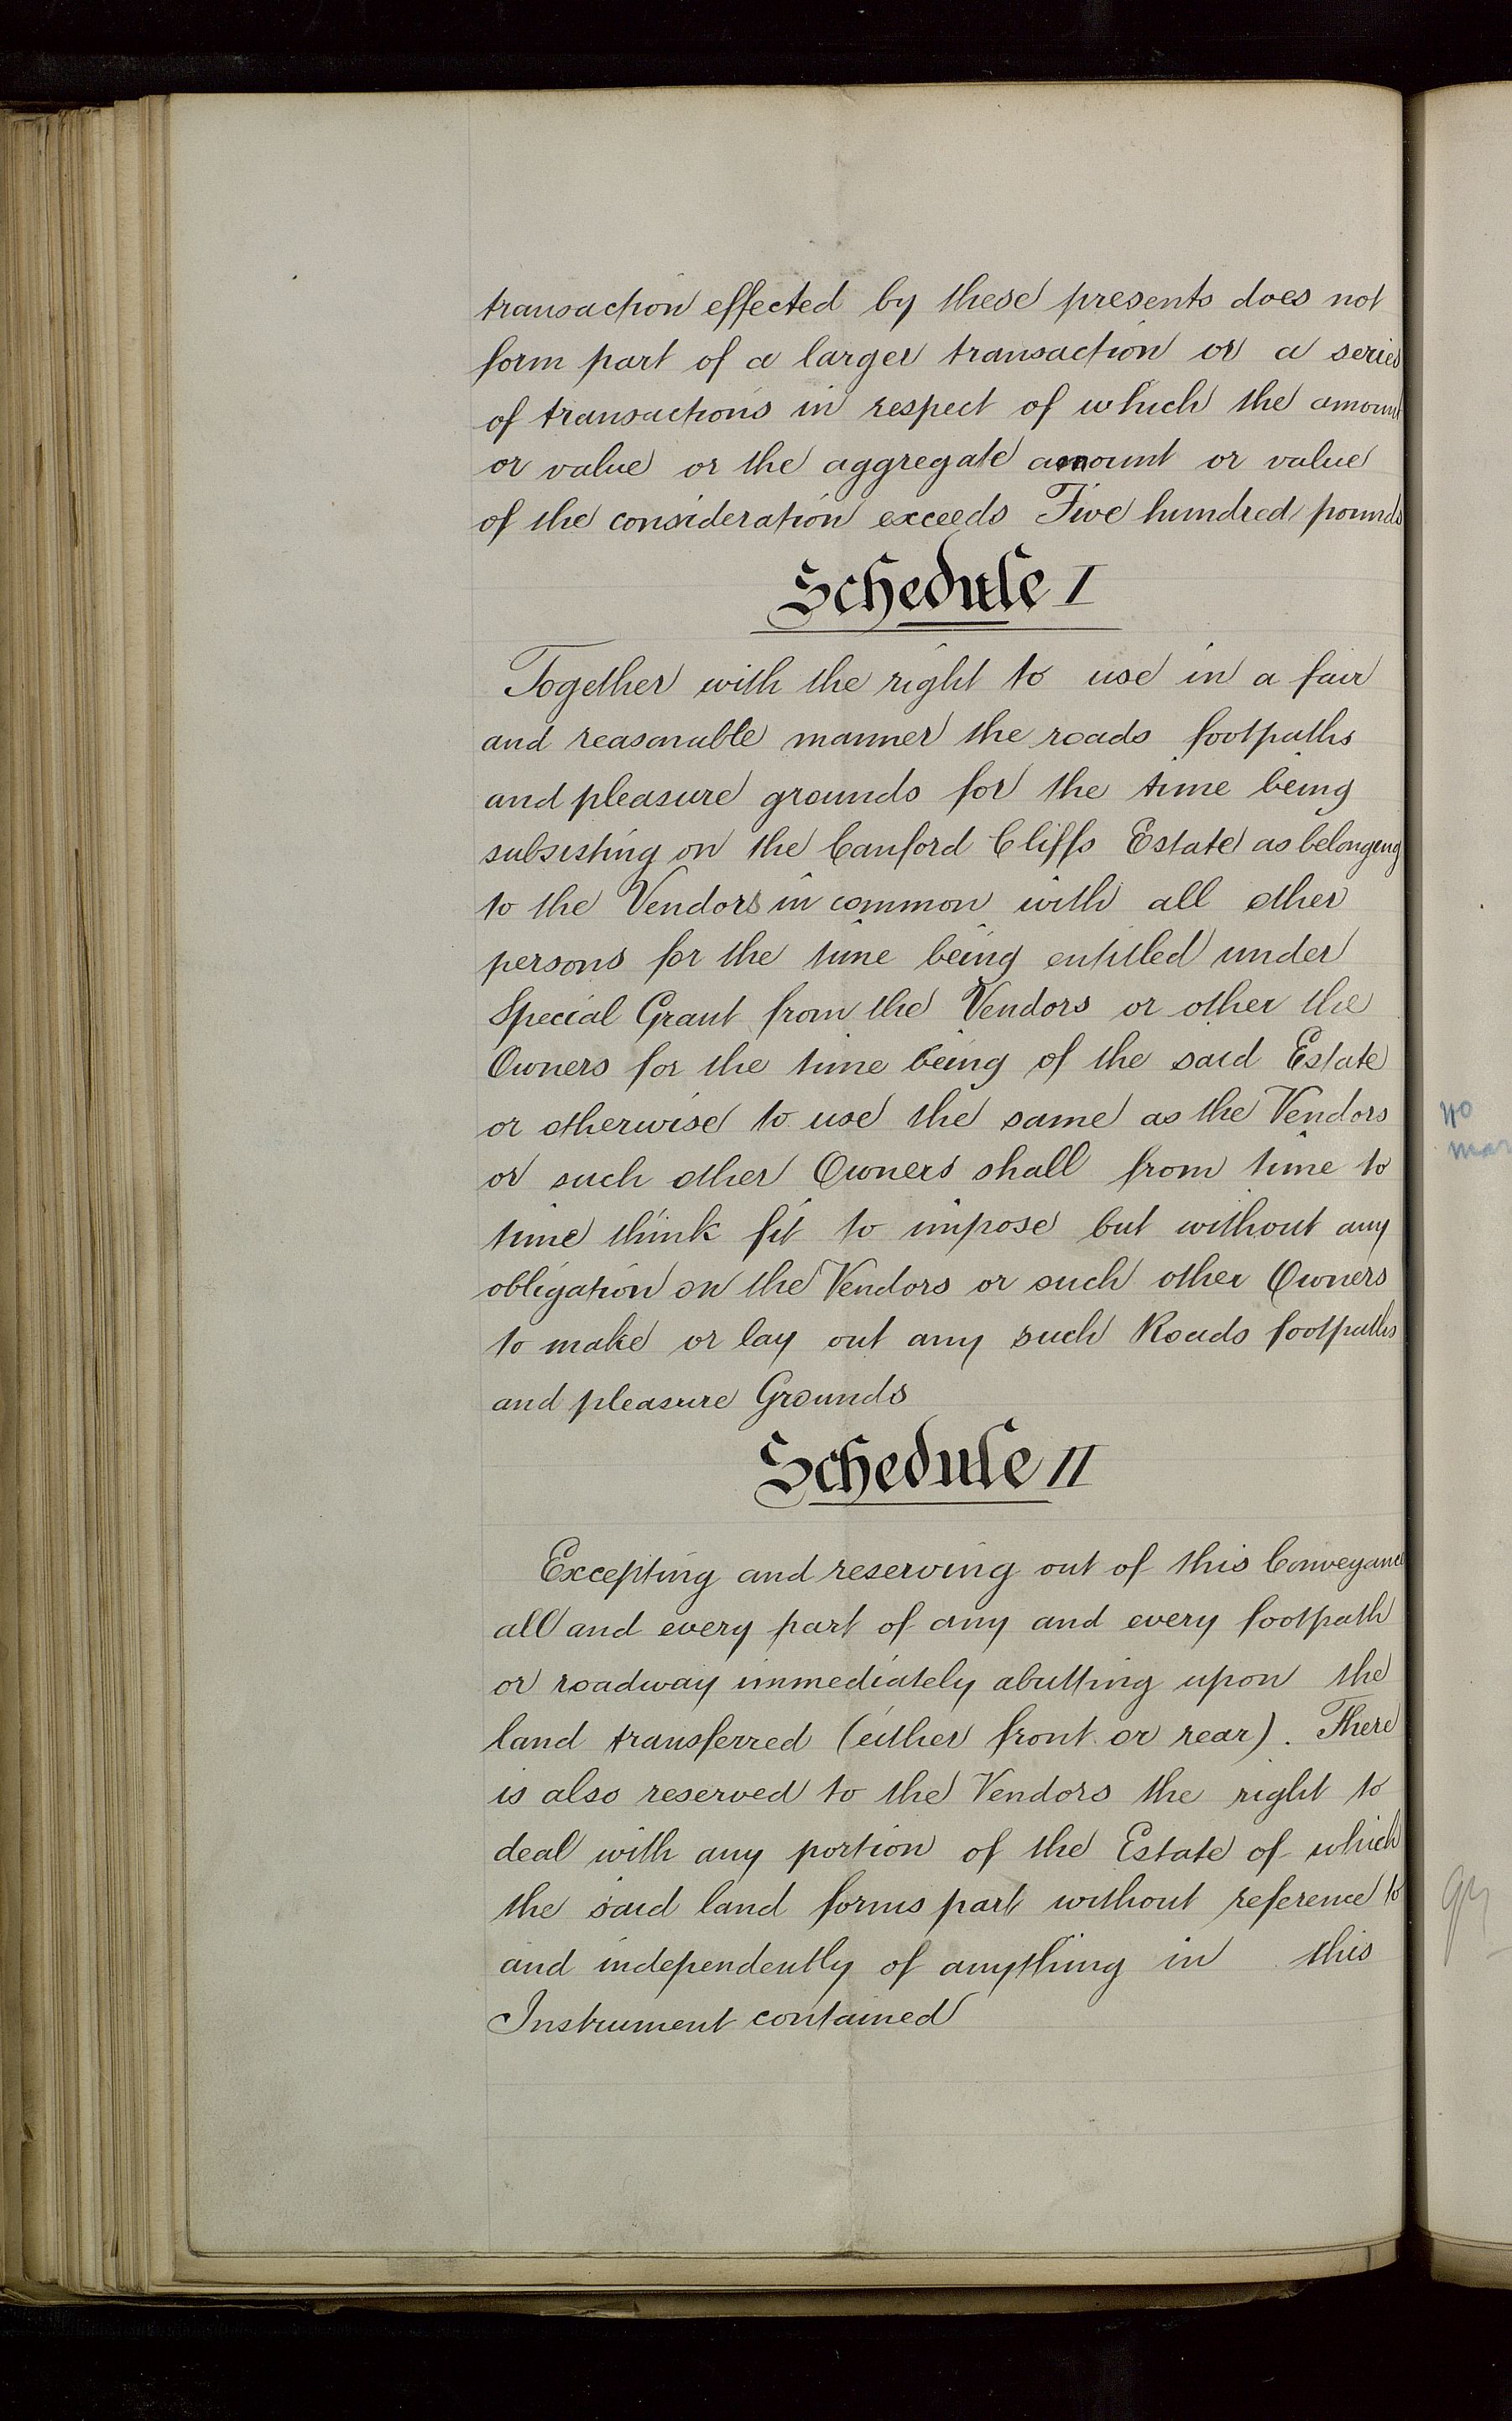 transaction effected by these presents does not
form part of a larger transaction or a series
of transactions in respect of which the amount
or value or the aggregate amount or value
of the consideration exceeds Five hundred pounds
Schedule I
Together with the right to use in a fair
and reasonable manner the roads footpaths
and pleasure grounds for the time being
subsisting on the Canford Cliffs Estate as belonging
to the Vendors in common with all other
persons for the time being entitled under
Special Grant from the Vendors or other the
Owners for the time being of the said Estate
or otherwise to use the same as the Vendors
or such other Owners shall from time to
time think fit to impose but without any
obligation on the Vendors or such other Owners
to make or lay out any such Roads footpaths
and pleasure Grounds
Schedule II
Excepting and reserving out of this Conveyance
all and every part of any and every footpath
or roadway immediately abutting upon the
land transferred (either front or rear). There
is also reserved to the Vendors the right to
deal with any portion of the Estate of which
the said land forms part without reference to
and independently of anything in this
Instrument contained
no